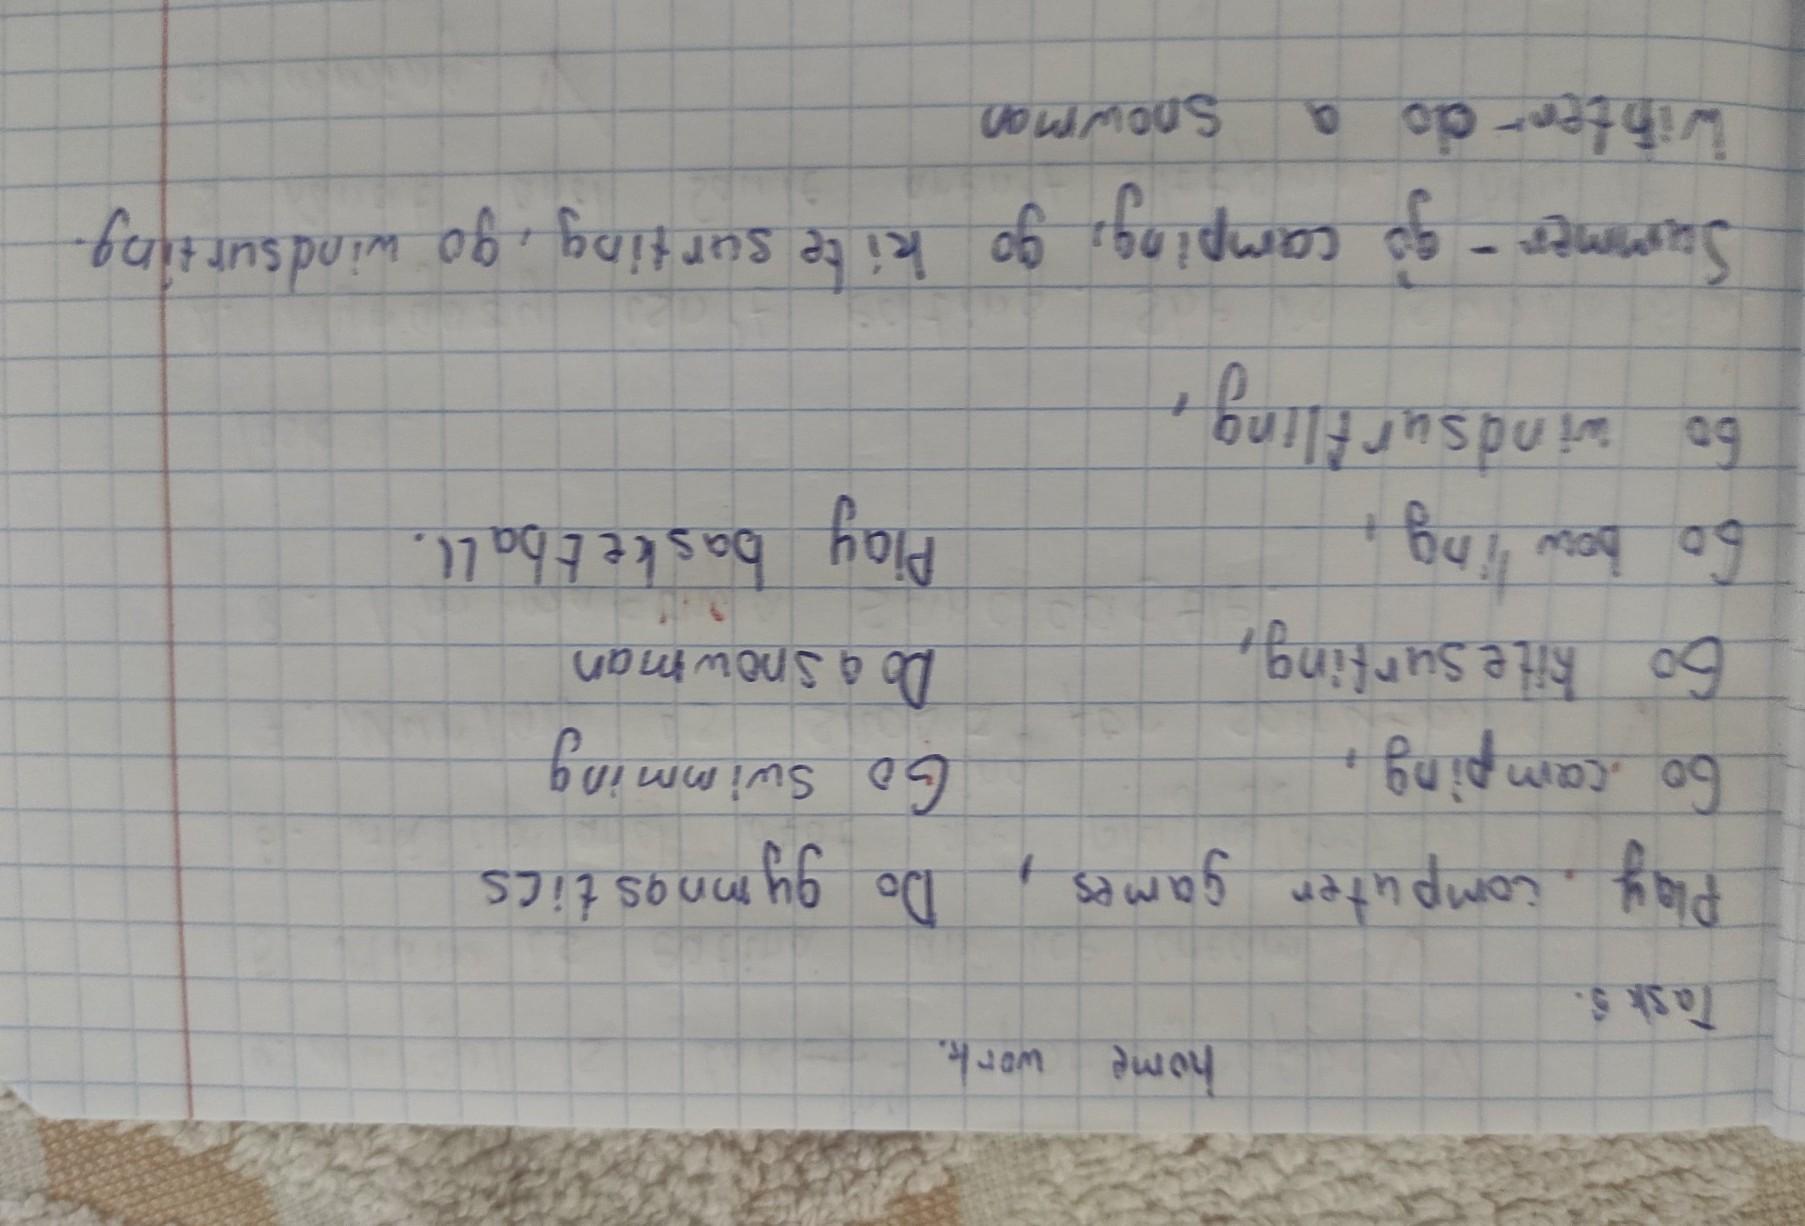 home work.
Task 5.
Play computer games, Do gymnastics
Go camping, Go swimming
Go kitesurfing, Do a snowman
Go bowling, Play basketball.
Go windsurfling,
Summer - go camping, go kitesurfing, go windsurfing.
Winter - do a snowman